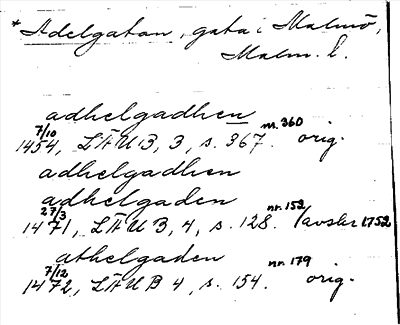 * Adelgatan, gata i Malmö,
Malm. l.
adhelgadhen
7/10 1454, LÄUB, 3, s. 367. nr. 360 orig.
adhelgadhen
adhelgaden
27/3 1471, LÄUB, 4, s. 128. nr. 152 /avskr 1752
athelgaden
7/12 1472, LÄUB 4, s. 154. nr. 179 orig.